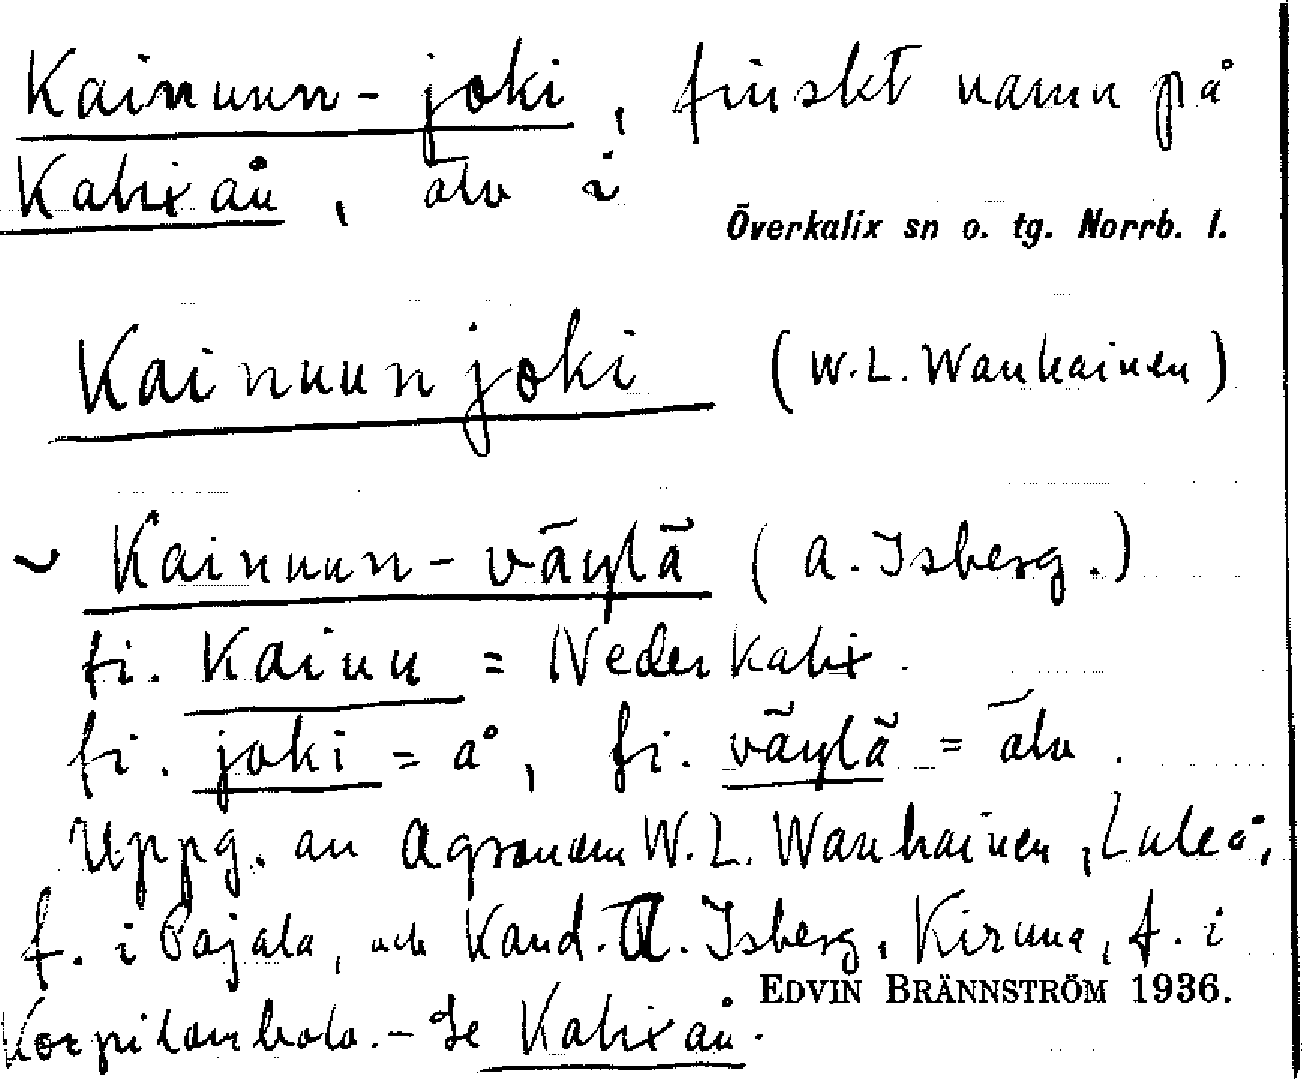 Kainuun-joki, finskt namn på
Kalix än, älv i
Överkalix sn o. tg. Norrb. l.
Kainuunjoki (W.L. Wanhainen)
~ Kainuun-väylä (A. Isberg.)
fi. Kainu = Nederkalix.
fi. joki = å, fi. väylä = älv.
Uppg. av Agronom W.L. Wanhainen, Luleå,
f. i Pajala, och Kand. A. Isberg, Kiruna, f. i
EDVIN BRÄNNSTRÖM 1936.
Korpilombolo. - Se Kalix än.